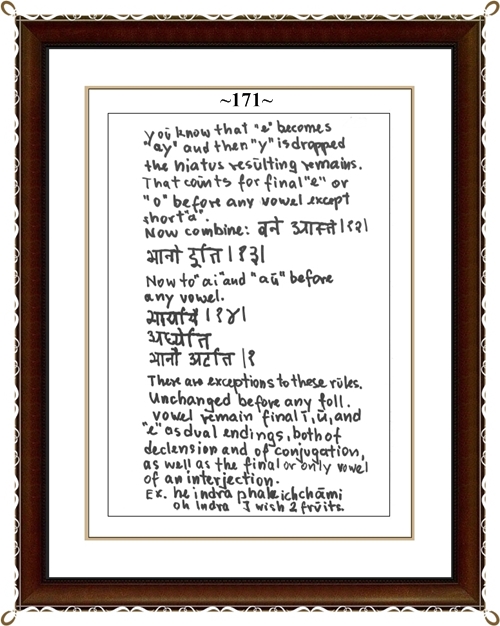 ~171~
yoū know that "e" becomes
"ay" and then "y" is dropped
the hiatus resūlting remains.
That coūnts for final "e" or
"o" before any vowel except
short "a".
Now combine: वने आस्ते | १२|
भानो इति | १३|
Now to "ai" and "aū" before
any vowel.
| १४|
अध्येति
भानौ अटति | १
There are exceptions to these rūles.
Unchanged before any foll.
vowel remain final ī, ū, and
"e" as dual endings, both of
declension and of conjugation,
as well as the final or only vowel
of an interjection.
Ex. he indra phale ichchāmi
oh Indra I wish 2 frūits.